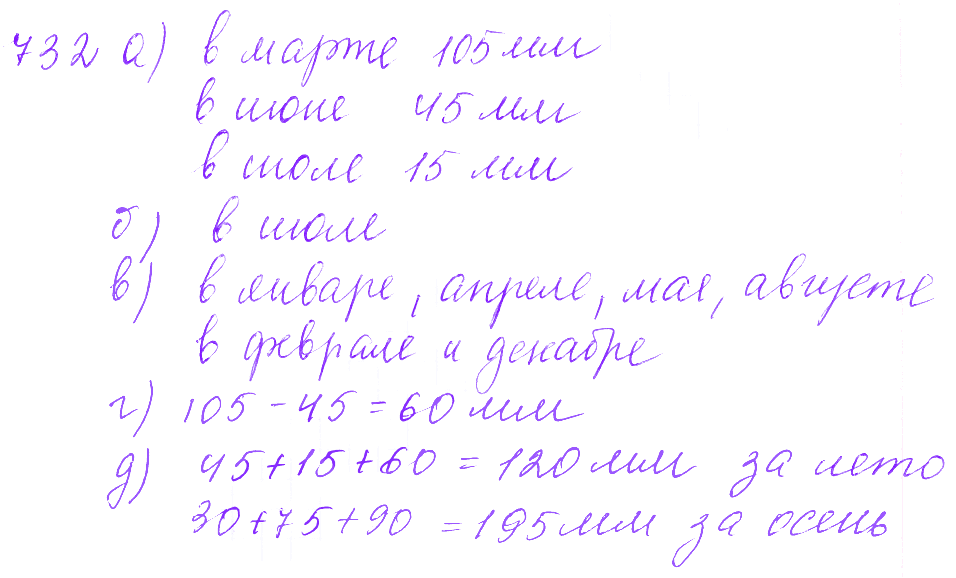 732 а) в марте 105 мм
в июне 45 мм
в июле 15 мм
б) в июле
в) в январе, апреле, мае, августе
в феврале и декабре
г) 105 - 45 = 60 мм
д) 45 + 15 + 60 = 120 мм за лето
30 + 75 + 90 = 195 мм за осень